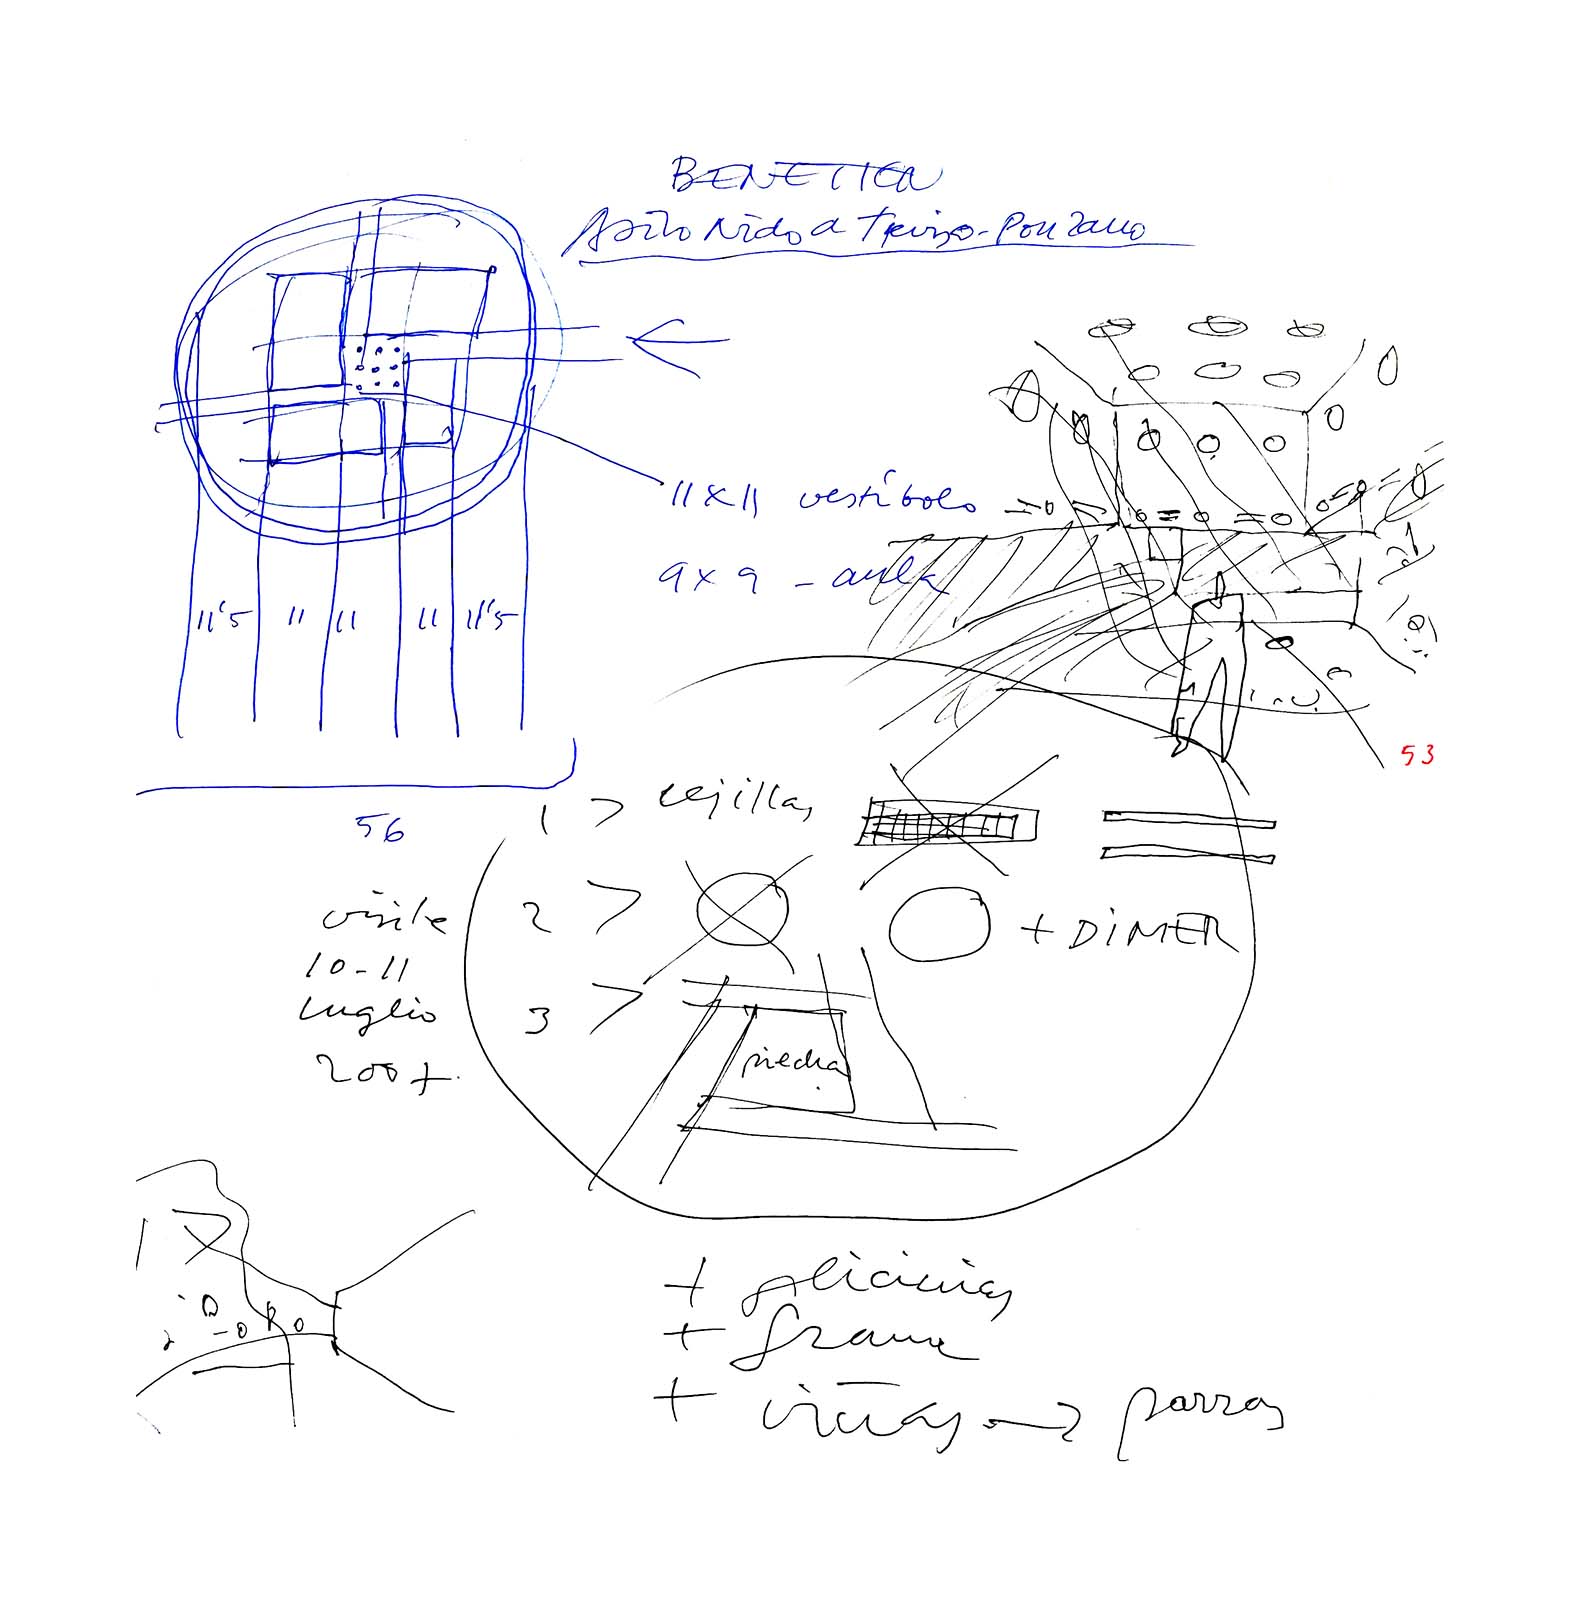 BENETTON
Asilo Nido a Treviso-Ponzano
11x11 vestíbolo
9x9 - aula
11'5 11 11 11 11'5
56
53
1 > rejillas
2 > + DIMER
3 >
piedra
visite
10-11
luglio
2007.
+ glicinias
+ grama
+ viñas → parras